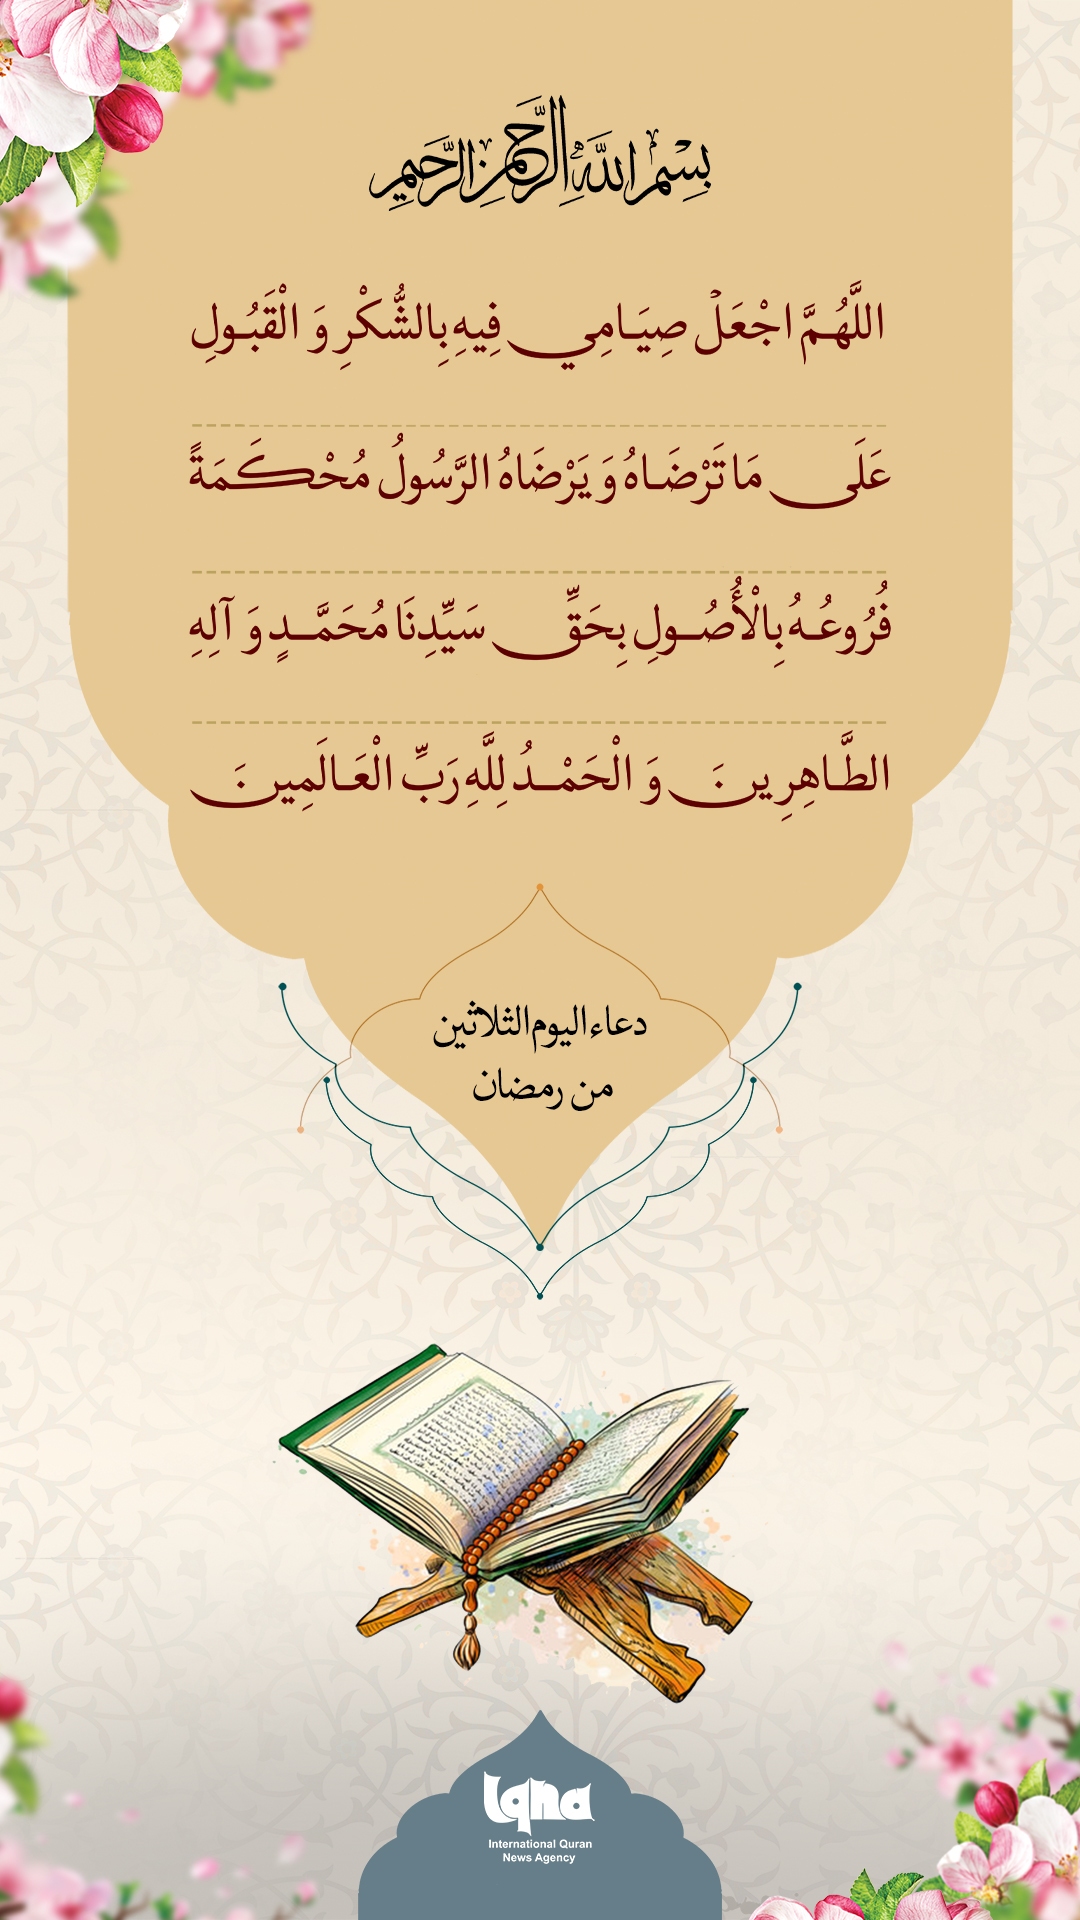 بِسْمِ اللَّهِ الرَّحْمَنِ الرَّحِيمِ
اللَّهُمَّ اجْعَلْ صِيَامِي فِيهِ بِالشُّكْرِ وَ الْقَبُولِ
عَلَى مَا تَرْضَاهُ وَ يَرْضَاهُ الرَّسُولُ مُحْكَمَةً
فُرُوعُهُ بِالْأُصُولِ بِحَقِّ سَيِّدِنَا مُحَمَّدٍ وَ آلِهِ
الطَّاهِرِينَ وَ الْحَمْدُ لِلَّهِ رَبِّ الْعَالَمِينَ
دعاء اليوم الثلاثين
من رمضان
Iqna
International Quran
News Agency